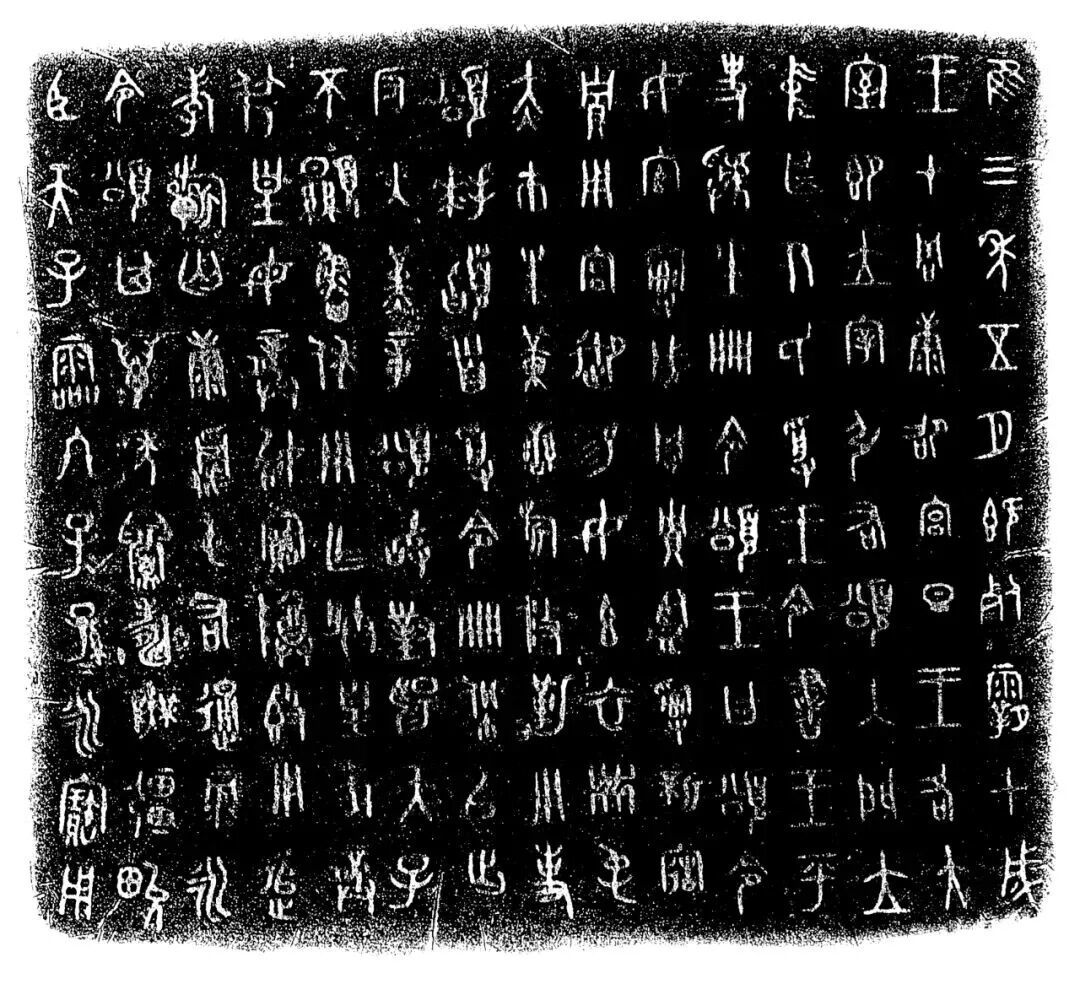 隹三年五月既死霸甲戌
王才周康卲宮旦王各大
室即立宰引右頌入門立
中廷尹氏受王令書王乎
史虢生冊令頌王曰頌令
女官𤔲成周貯監𤔲新造
貯用宮御易女玄衣黹屯
赤巿朱黃䜌旂攸勒用事
頌拜𩒨首受令冊佩以出
反入堇章頌敢對揚天子
不顯魯休用乍朕皇考龏
弔皇母龏始寶尊壺用追
孝𣄨匄康𩁹屯右通彔永
令頌其萬年眉壽無疆畯
臣天子霝冬子孫永寶用